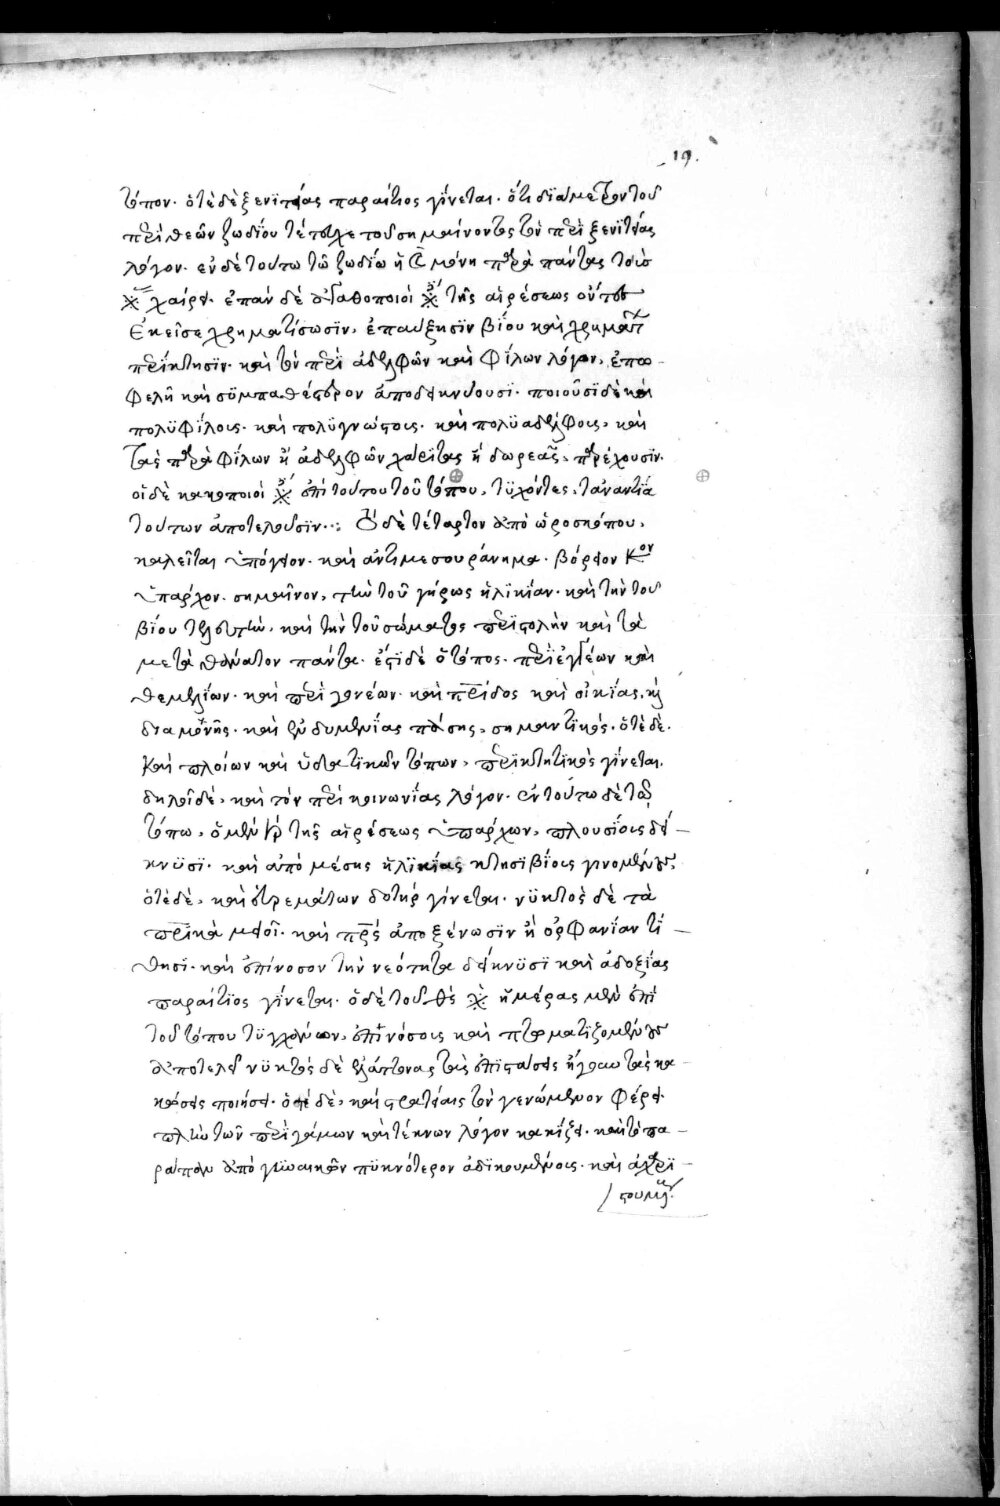 19.
τόπον. ὁτὲ δὲ ξενιτείας παραίτιος γίνεται. ὅτι διάμετρον τοῦ
περὶ θεῶν ζωδίου τέτυχε τοῦ σημαίνοντος τὸν περὶ ξενιτείας
λόγον. ἐν δὲ τούτω τῶ ζωδίω ἡ ☾ μόνη παρὰ πάντας τοὺς
χαίρει. ἐπὰν δὲ ἀγαθοποιοὶ τῆς αἱρέσεως οὗτοι
ἐκεῖσε χρηματίσωσιν, ἐπαύξησιν βίου καὶ χρημάτων
περίκτησιν. καὶ τὸν περὶ ἀδελφῶν καὶ φίλων λόγον, ἐπω-
φελῆ καὶ συμπαθέστερον ἀποδεικνύουσι. ποιοῦσι δὲ καὶ
πολυφίλους. καὶ πολυγνώστους. καὶ πολυαδέλφους, καὶ
τὰς παρὰ φίλων ἢ ἀδελφῶν χάριτας ἢ δωρεὰς, παρέχουσιν.
οἱ δὲ κακοποιοὶ ἐπὶ τούτου τοῦ τόπου, τυχόντες, τἀναντία
τούτων ἀποτελοῦσιν. Τὸ δὲ τέταρτον ἀπὸ ὡροσκόπου,
καλεῖται ὑπόγειον. καὶ ἀντιμεσουράνημα. βόρειον κον
ὑπάρχον. σημαῖνον, τὴν τοῦ γήρως ἡλικίαν. καὶ τὴν τοῦ
βίου τελευτὴν. καὶ τὴν τοῦ σώματος περιστολὴν καὶ τὰ
μετὰ θάνατον πάντα. ἔστι δὲ ὁ τόπος. περὶ ἐγγέων καὶ
θεμελίων. καὶ περὶ γονέων. καὶ πατρίδος καὶ οἰκίας, καὶ
διαμονῆς. καὶ ἐνδομενίας πάσης, σημαντικός. ὁτὲ δὲ.
καὶ πλοίων καὶ ὑδατικῶν τόπων, περικτητικὸς γίνεται.
δηλοῖ δὲ, καὶ τὸν περὶ κοινωνίας λόγον. ἐν τούτω δὲ τῶ
τόπω, ὁ μὲν ♄ τῆς αἱρέσεως ὑπάρχων, πλουσίους δεί-
κνυσι. καὶ ἀπὸ μέσης ἡλικίας κτησιβίους γινομένους,
ὁτὲ δὲ, καὶ χρεμάτων δοτὴρ γίνεται. νυκτὸς δὲ τὰ
πατρικὰ μειοῖ. καὶ πρὸς ἀποξένωσιν ἢ ὀρφανίαν τί-
θησι. καὶ ἐπίνοσον τὴν νεότητα δείκνυσι καὶ ἀδοξίας
παραίτιος γίνεται. ὁ δὲ τοῦ ἡμέρας μὲν ἐπὶ
τοῦ τόπου τυγχάνων, ἐπινόσους καὶ πτωματιζομένους
ἀποτελεῖ νυκτὸς δὲ ἐλάττονας τὰς ἐπιτάσεις ἤγουν τὰς κα-
κώσεις ποιήσει. ὁτὲ δὲ, καὶ στρατείαις τὸν γενώμενον φέρει.
πλὴν τὸν περὶ γάμων καὶ τέκνων λόγον κακίζει. καὶ τὸ πα-
ράπαν ἀπὸ γυναικῶν πυκνότερον ἀδικουμένους. καὶ ἀχαρι-
στουμένους.